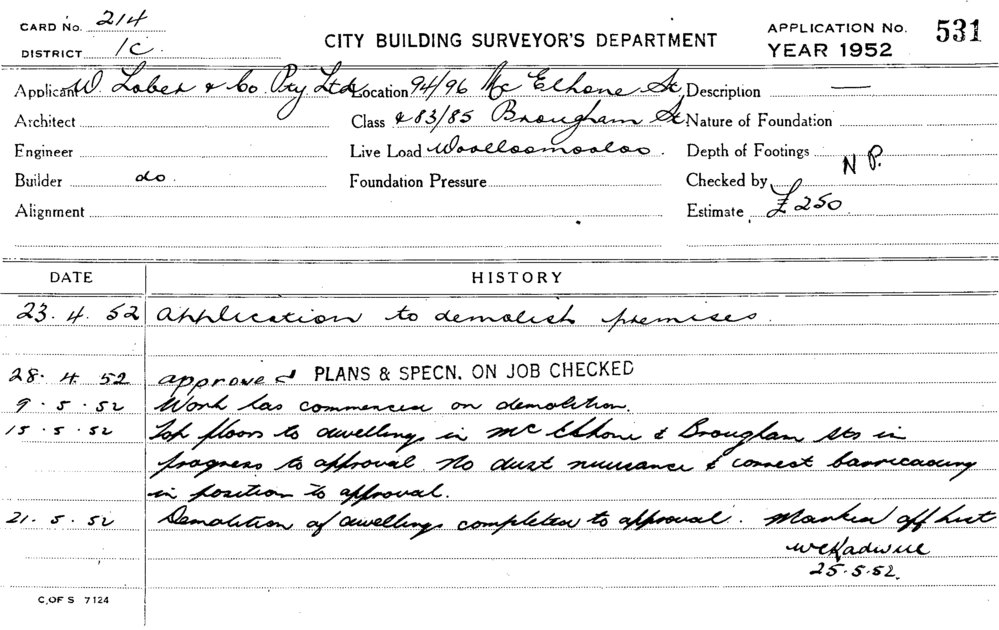 CARD No. 214
DISTRICT 1C
CITY BUILDING SURVEYOR'S DEPARTMENT
APPLICATION No. 531
YEAR 1952
Applicant W. Lober & Co Pty Ltd Location 94/96 Mc Elhone St Description —
Architect Class & 83/85 Brougham St Nature of Foundation
Engineer Live Load Woolloomooloo. Depth of Footings N P.
Builder do Foundation Pressure Checked by
Alignment Estimate £250
DATE HISTORY
23. 4. 52 Application to demolish premises.
28. 4. 52 approved PLANS & SPECN. ON JOB CHECKED
9. 5. 52 Work has commenced on demolition.
15. 5. 52 Top floors to dwellings in Mc Elhone & Brougham Sts in
progress to approval. No dust nuisance & correct barricading
in position to approval.
21. 5. 52 Demolition of dwellings completed to approval. Marked off list
25.5.52.
C. OF S 7124